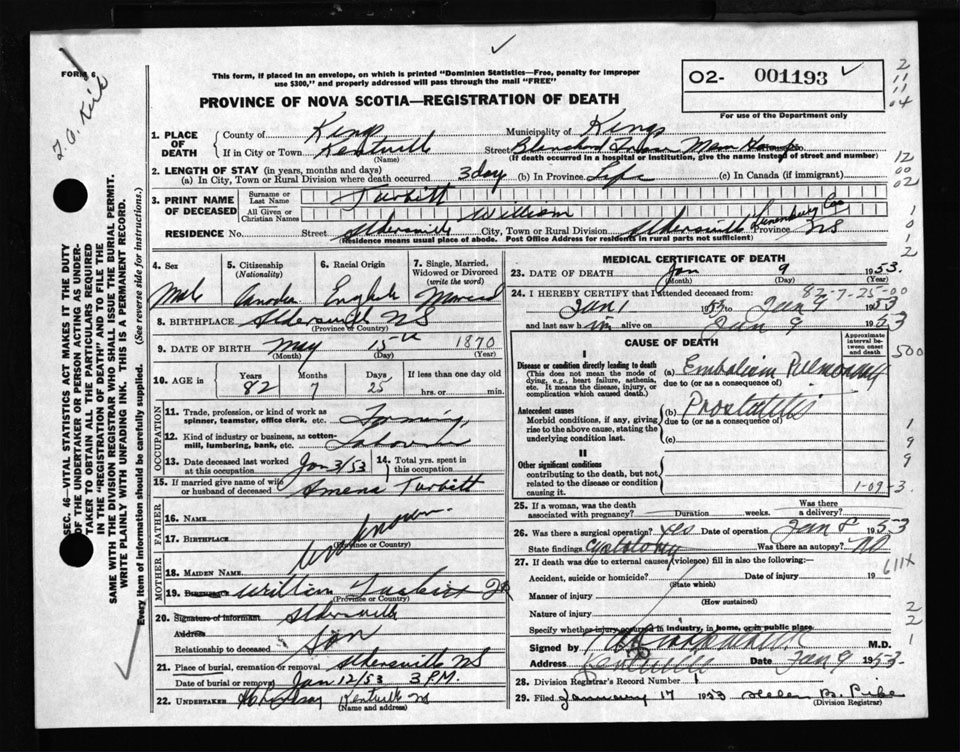 FORM 6
This form, if placed in an envelope, on which is printed "Dominion Statistics—Free, penalty for improper
use $300," and properly addressed will pass through the mail "FREE"
O2- 001193
For use of the Department only
PROVINCE OF NOVA SCOTIA—REGISTRATION OF DEATH
1. PLACE OF DEATH
County of Kings Municipality of Kings
If in City or Town Kentville Street Blanchard
(Name) (If death occurred in a hospital or institution, give the name instead of street and number)
2. LENGTH OF STAY (in years, months and days)
(a) In City, Town or Rural Division where death occurred 3 day (b) In Province Life (c) In Canada (if immigrant)
3. PRINT NAME OF DECEASED
Surname or Last Name Turbitt
All Given or Christian Names William
RESIDENCE No. Street Aldersville City, Town or Rural Division Aldersville Lunenburg Co Province NS
(Residence means usual place of abode. Post Office Address for residents in rural parts not sufficient)
4. Sex Male
5. Citizenship (Nationality) Canadian
6. Racial Origin English
7. Single, Married, Widowed or Divorced (write the word) Married
8. BIRTHPLACE Aldersville NS
(Province or Country)
9. DATE OF BIRTH May 15th 1870
(Month) (Day) (Year)
10. AGE in Years 82 Months 7 Days 25 If less than one day old hrs. or min.
OCCUPATION
11. Trade, profession, or kind of work as spinner, teamster, office clerk, etc. Farming
12. Kind of industry or business, as cotton-mill, lumbering, bank, etc. Labourer
13. Date deceased last worked at this occupation Jan 3/53
14. Total yrs. spent in this occupation
15. If married give name of wife or husband of deceased Amena Turbitt
FATHER
16. NAME
17. BIRTHPLACE Unknown
(Province or Country)
MOTHER
18. MAIDEN NAME
19. BIRTHPLACE William Turbitt Jr
(Province or Country)
20. Signature of informant Aldersville
Address
Relationship to deceased Son
21. Place of burial, cremation or removal Aldersville NS
Date of burial or removal Jan 12/53 3 P.M.
22. UNDERTAKER Kentville NS
(Name and address)
MEDICAL CERTIFICATE OF DEATH
23. DATE OF DEATH Jan 9 1953.
(Month) (Day) (Year)
82-7-25-00
24. I HEREBY CERTIFY that I attended deceased from:
Jan 1 1953 to Jan 9 1953
and last saw him alive on Jan 9 1953
CAUSE OF DEATH
Approximate interval between onset and death
I
Disease or condition directly leading to death
(This does not mean the mode of dying, e.g., heart failure, asthenia, etc. It means the disease, injury, or complication which caused death.)
(a) Embolism Pulmonary
due to (or as a consequence of)
Antecedent causes
Morbid conditions, if any, giving rise to the above cause, stating the underlying condition last.
(b) Prostatitis
due to (or as a consequence of)
(c)
II
Other significant conditions
contributing to the death, but not related to the disease or condition causing it.
1-09-3.
25. If a woman, was the death associated with pregnancy? Duration weeks. Was there a delivery?
26. Was there a surgical operation? yes Date of operation Jan 8 1953
State findings cystotomy Was there an autopsy? NO
27. If death was due to external causes (violence) fill in also the following:
Accident, suicide or homicide? Date of injury 19
(State which)
Manner of injury
(How sustained)
Nature of injury
Specify whether injury occurred in industry, in home, or in public place
Signed by M.D.
Address Kentville Date Jan 9 1953.
28. Division Registrar's Record Number 1
29. Filed January 17 1953 Helen B. Pike
(Division Registrar)
SEC. 46 VITAL STATISTICS ACT MAKES IT THE DUTY
OF THE UNDERTAKER OR PERSON ACTING AS UNDER-
TAKER TO OBTAIN ALL THE PARTICULARS REQUIRED
IN THE "REGISTRATION OF DEATH" AND TO FILE THE
SAME WITH THE DIVISION REGISTRAR WHO SHALL ISSUE THE BURIAL PERMIT.
WRITE PLAINLY WITH UNFADING INK. THIS IS A PERMANENT RECORD.
Every item of information should be carefully supplied. (See reverse side for instructions.)
2
11
11
04
12
00
02
1
0
1
2
500
1
9
9
611X
2
2
1